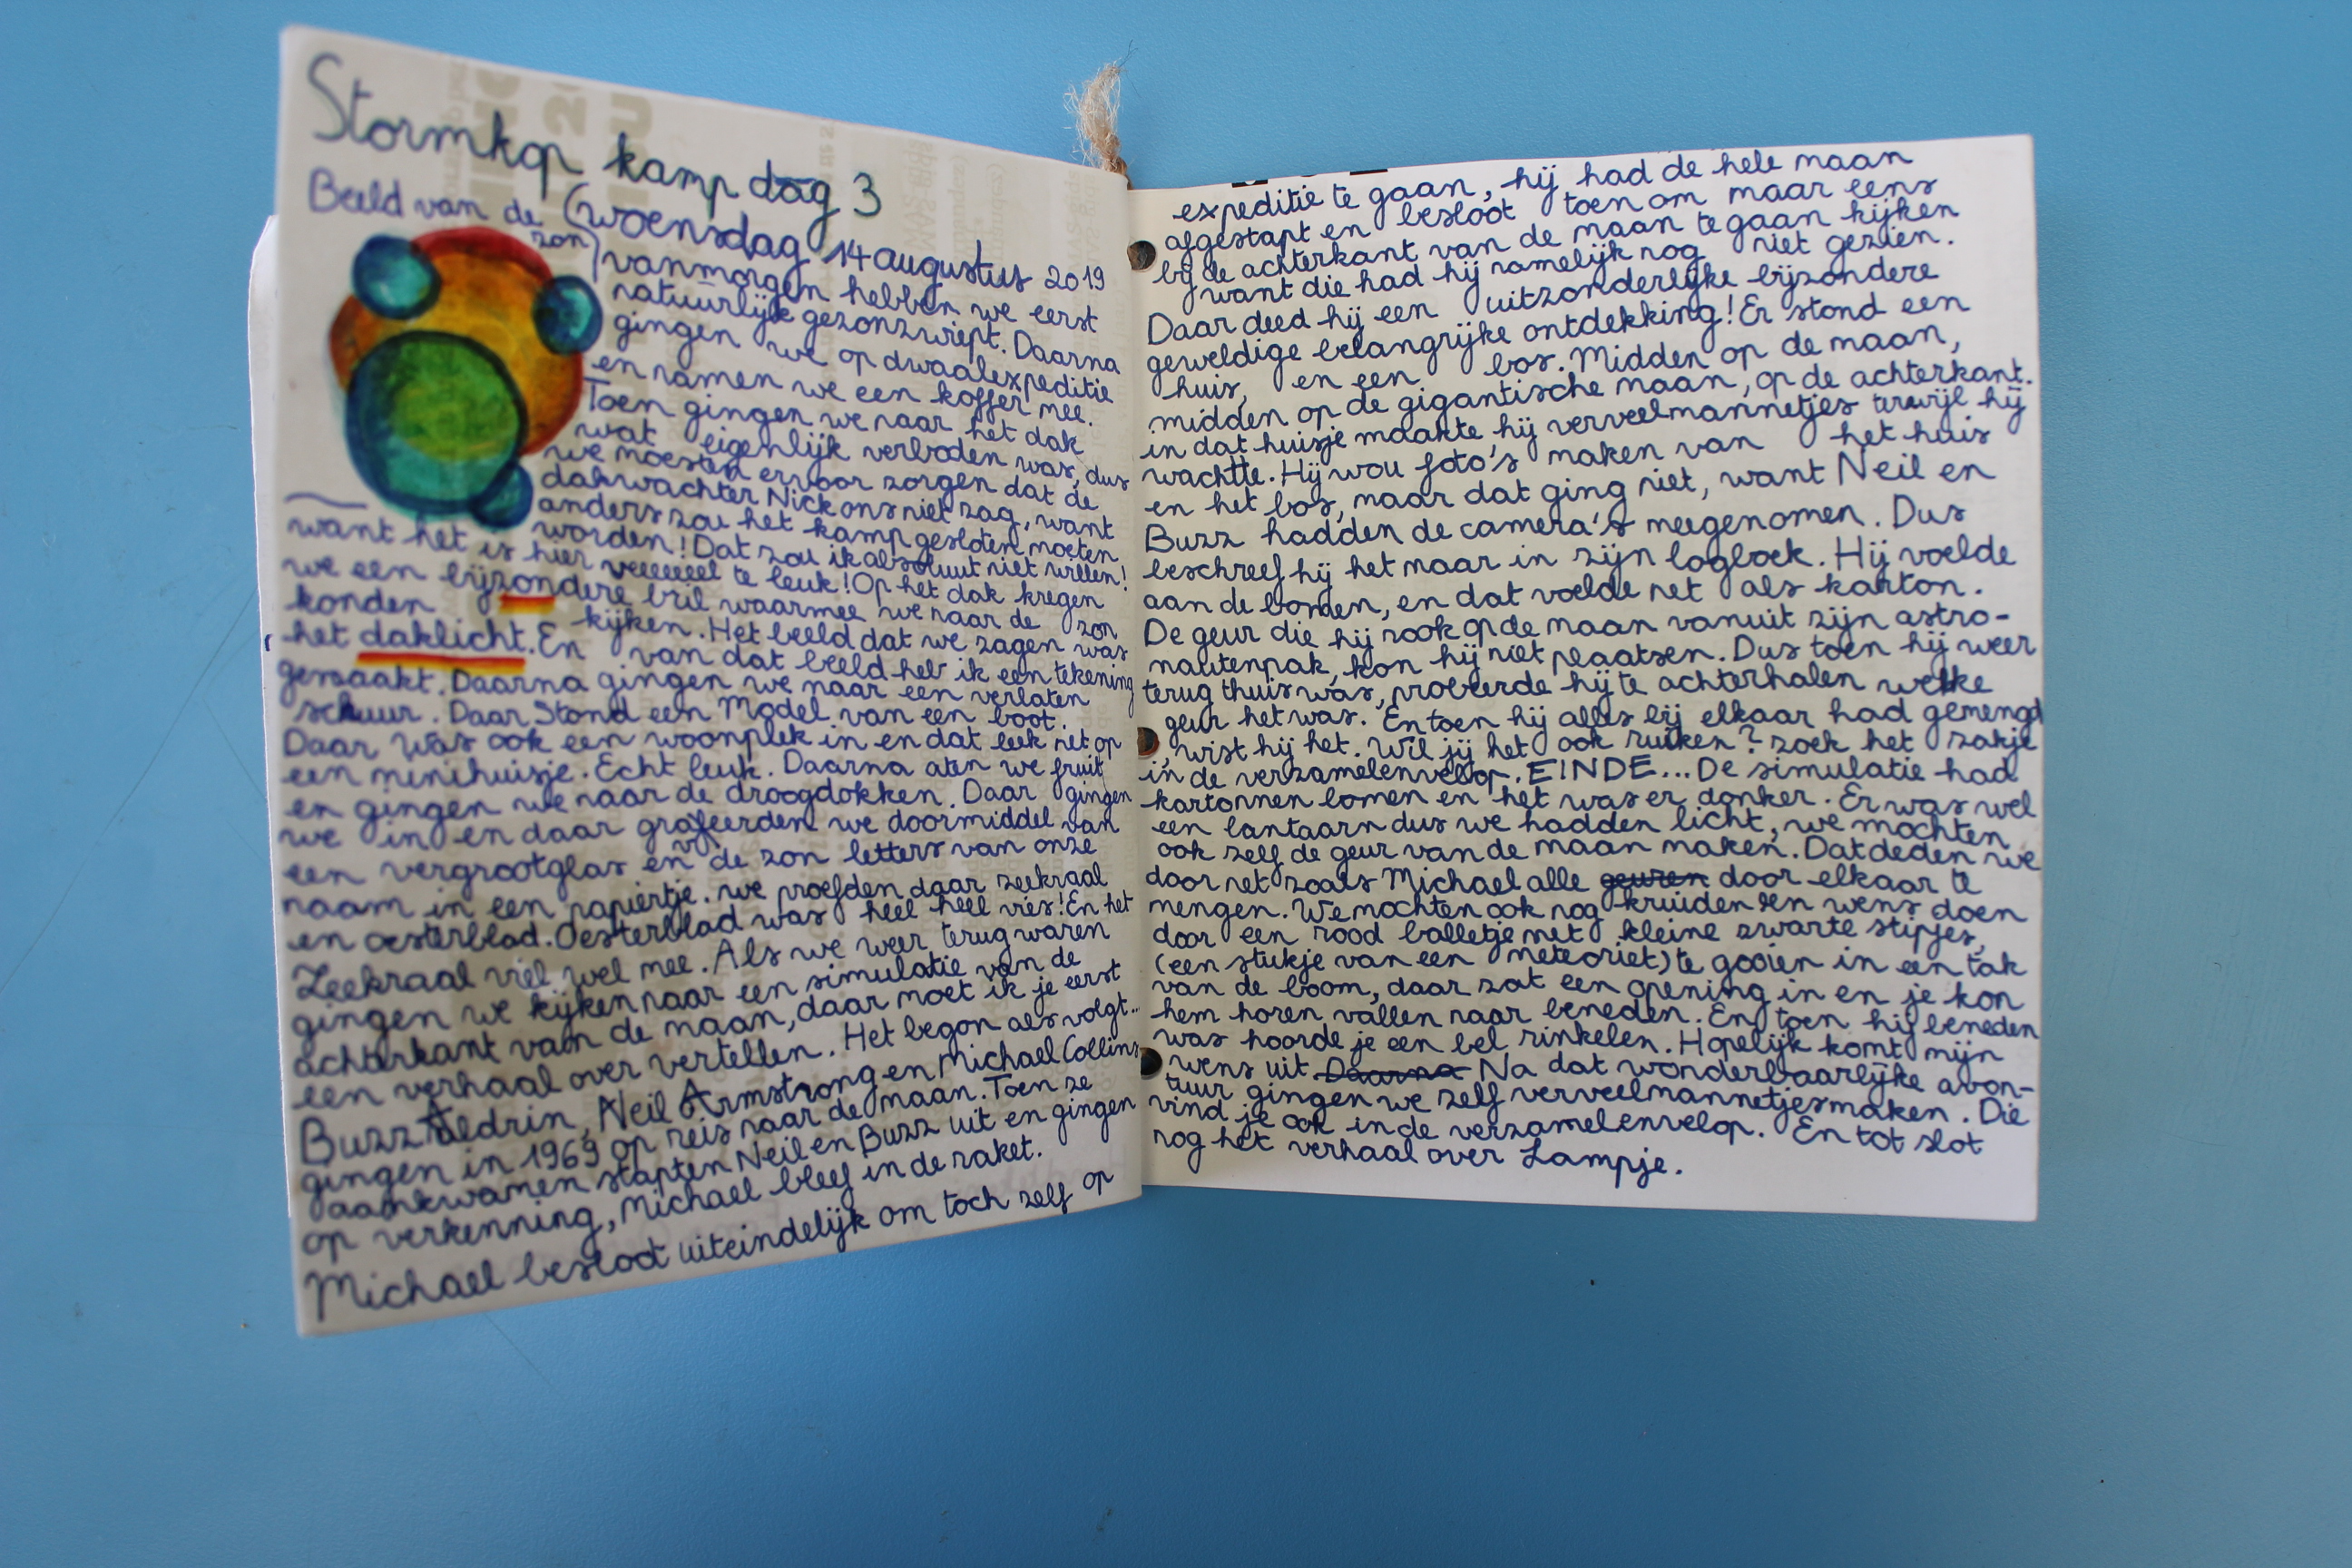 Stormkop kamp dag 3
Beeld van de zon
(woensdag 14 augustus 2019
vanmorgen hebben we eerst
natuurlijk gezonzwiept. Daarna
gingen we op dwaalexpeditie
en namen we een koffer mee.
Toen gingen we naar het dak
wat eigenlijk verboden was, dus
we moesten ervoor zorgen dat de
dakwachter Nick ons niet zag, want
anders zou het kamp gesloten moeten
worden! Dat zou ik absoluut niet willen!
want het is hier veeeeeel te leuk! Op het dak kregen
we een bijzondere bril waarmee we naar de zon
konden kijken. Het beeld dat we zagen was
het daklicht. En van dat beeld heb ik een tekening
gemaakt. Daarna gingen we naar een verlaten
schuur. Daar Stond een Model van een boot.
Daar was ook een woonplek in en dat leek net op
een minihuisje. Echt leuk. Daarna aten we fruit
en gingen we naar de droogdokken. Daar gingen
we in en daar graveerden we doormiddel van
een vergrootglas en de zon letters van onze
naam in een papiertje. we proefden daar zeekraal
en oesterblad. Oesterblad was heel heel vies! En het
Zeekraal viel wel mee. Als we weer terug waren
gingen we kijken naar een simulatie van de
achterkant van de maan, daar moet ik je eerst
een verhaal over vertellen. Het begon als volgt...
Buzz Aldrin, Neil Armstrong en Michael Collins
gingen in 1969 op reis naar de maan. Toen ze
aankwamen stapten Neil en Buzz uit en gingen
op verkenning, Michael bleef in de raket.
Michael besloot uiteindelijk om toch zelf op
expeditie te gaan, hij had de hele maan
afgestapt en besloot toen om maar eens
bij de achterkant van de maan te gaan kijken
want die had hij namelijk nog niet gezien.
Daar deed hij een uitzonderlijke bijzondere
geweldige belangrijke ontdekking! Er stond een
huis, en een bos. Midden op de maan,
midden op de gigantische maan, op de achterkant.
in dat huisje maakte hij verveelmannetjes terwijl hij
wachtte. Hij wou foto's maken van het huis
en het bos, maar dat ging niet, want Neil en
Buzz hadden de camera's meegenomen. Dus
beschreef hij het maar in zijn logboek. Hij voelde
aan de bomen, en dat voelde net als karton.
De geur die hij rook op de maan vanuit zijn astro-
nautenpak, kon hij niet plaatsen. Dus toen hij weer
terug thuis was, probeerde hij te achterhalen welke
geur het was. En toen hij alles bij elkaar had gemengd
, wist hij het. Wil jij het ook ruiken? zoek het zakje
in de verzamelenvelop. EINDE... De simulatie had
kartonnen bomen en het was er donker. Er was wel
een lantaarn dus we hadden licht, we mochten
ook zelf de geur van de maan maken. Dat deden we
door net zoals Michael alle geuren door elkaar te
mengen. We mochten ook nog kruiden een wens doen
door een rood balletje met kleine zwarte stipjes,
(een stukje van een meteoriet) te gooien in een tak
van de boom, daar zat een opening in en je kon
hem horen vallen naar beneden. En toen hij beneden
was hoorde je een bel rinkelen. Hopelijk komt mijn
wens uit. Daarna Na dat wonderbaarlijke avon-
tuur gingen we zelf verveelmannetjes maken. Die
vind je ook in de verzamelenvelop. En tot slot
nog het verhaal over Lampje.